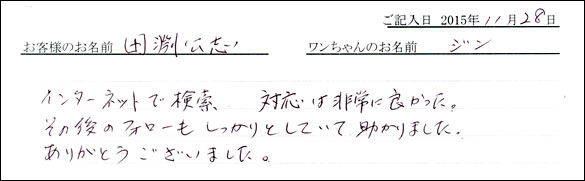 ご記入日 2015年11月28日
お客様のお名前 田淵公志 ワンちゃんのお名前 ジン
インターネットで検索、 対応は非常に良かった。
その後のフォローもしっかりとしていて助かりました.
ありがとうございました。